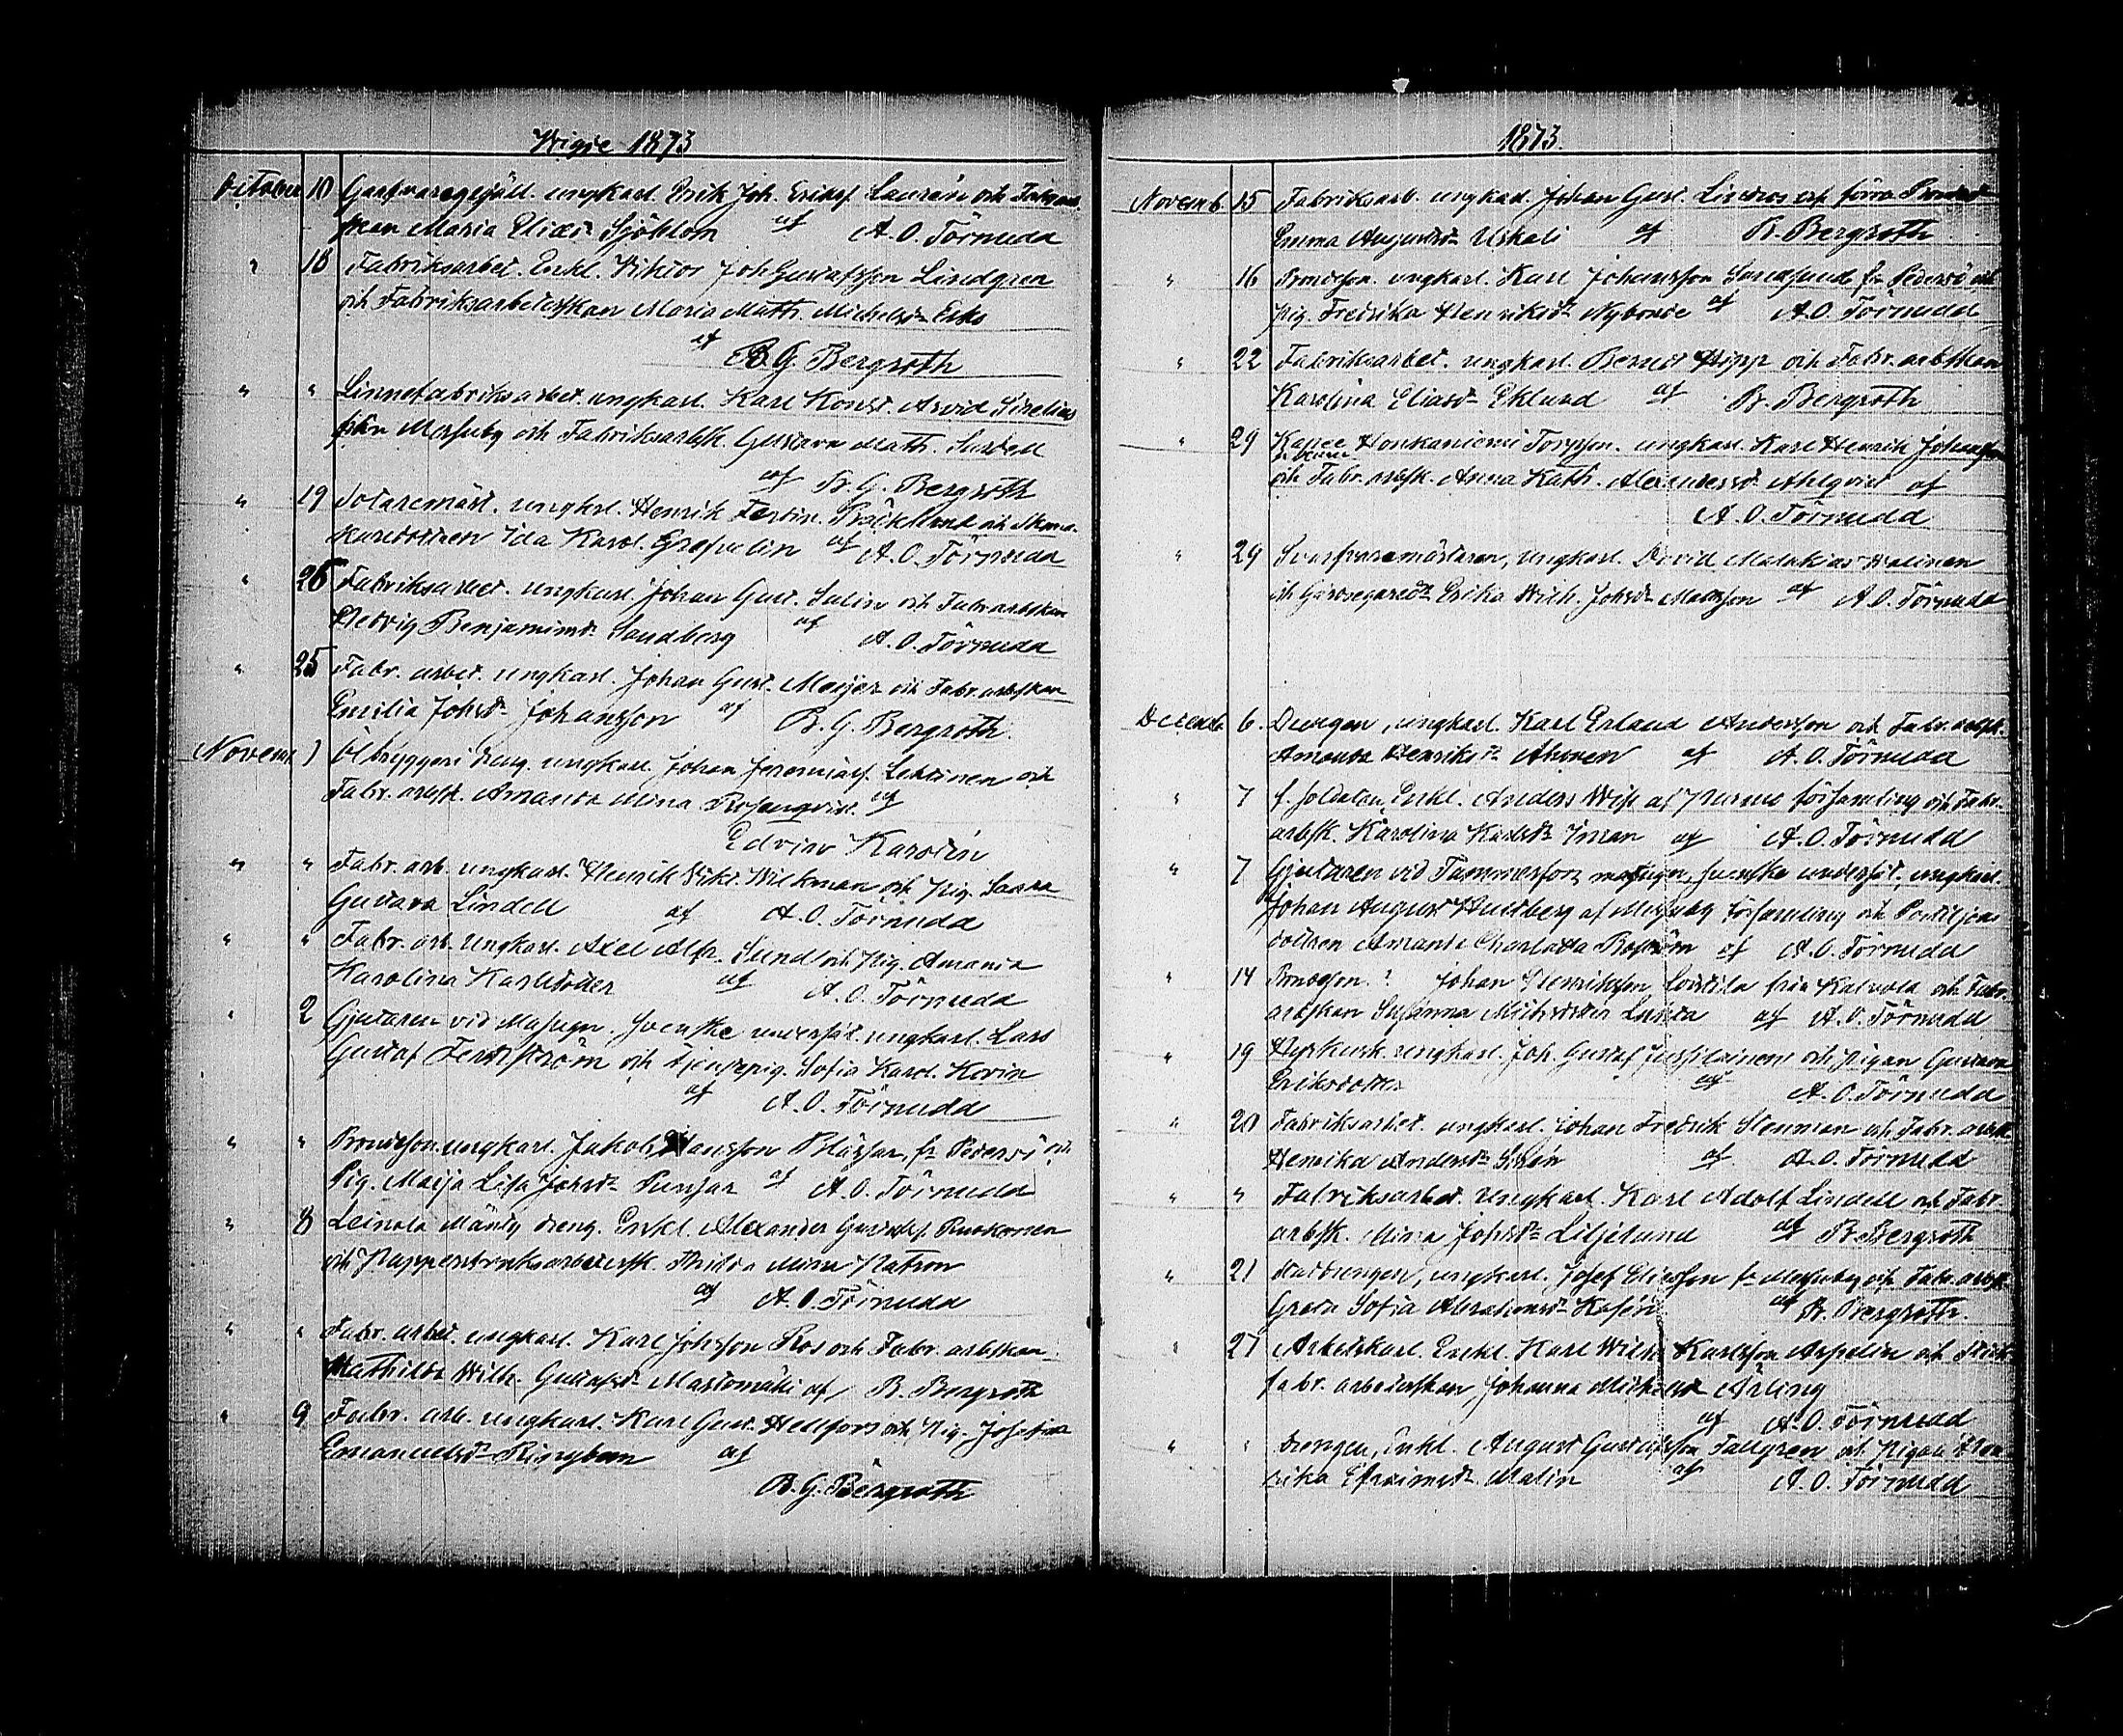 Wigde 1873
October 10 Garfvaregesäll. ungkarl. Erik Joh. Eriksf. Laurén och
Maria Eliæd:r Sjöblom af A. O. Törnudd
" 18 Fabriksarbet. Enkl. Viktor Joh Gustafsson Lindgren
och Fabriksarbeterskan Maria Math. Michelsd:r Esko
af B. G. Bergroth
" " Linnefabriksarbet. ungkarl. Karl Konst. Arvid Sirelius
från Messuby och Fabriksarbsk. Gustava Math.
af B. G. Bergroth
" 19 Sotaremäst. ungkrl. Henrik Ferdin. Bäcklund och
dottren Ida Karol. Grefvelin af A. O. Törnudd
" 26 Fabriksarbet. ungkarl. Johan Gust. Salin och Fabr arbskan
Hedvig Benjaminsd:r Sandberg af A. O. Törnudd
" 25 Fabr. arbet. ungkarl. Johan Gust. Meijer och Fabr. arbskan
Emilia Johsd:r Johansson af B. G. Bergroth.
Novemb. 1 Ölbryggeri dreng. ungkarl. Johan Jeremiasf. Lehtinen och
Fabr. arbsk. Amanda Mina Rosenqvist. af
Edvin Karstén
" " Fabr. arb. ungkarl. Henrik Vikt. Wilkman och Pig. Saara
Gustava Lindell af A. O. Törnudd
" " Fabr. arb. ungkarl. Axel Alfr. Sund och Pig. Amanda
Karolina Karlsdoter af A. O. Törnudd
" 2 Gjutaren vid Masugn. Svenske undersåt. ungkarl. Lars
Gustaf och tjenstepig. Sofia Karol. Korin
af A. O. Törnudd
" " Bondeson. ungkarl. Jakob Hansson fr Pedersö och
Pig. Maija Lisa Johsd:r Punjar af A. O. Törnudd
" 8 Leinola Mäntÿ dreng. Enkl. Alexander Gustafsf. Ruokonen
och Pappersbruksarbetersk. Hilda Mina Natron
af A. O. Törnudd
" " Fabr. arbet. ungkarl. Karl Johsson Ros och Fabr. arbskan
Mathilda Wilh. Gustafsd:r Mastomäki af B. Bergroth
" 9 Fabr. arb. ungkarl. Karl Gust. Hellfors och Pig. Josefina
Emanuelsd:r Ringbom af
B. G. Bergroth
1873.
Novemb. 15 Fabriksarb. ungkarl. Johan Gust. Lindros och förra
Emma Augustsd:r Uskali af B. Bergroth
" 16 Bondeson. ungkarl. Karl Johansson Sandsund fr Pedersö och
pig. Fredrika Henriksd:r Nybonde af A. O. Törnudd
" 22 Fabriksarbet. ungkarl. Bernd. Hipp och Fabr. arbskan
Karolina Eliasd:r Eklund af B. Bergroth
" 29 Honkaniemi Torpson. ungkarl. Karl Henrik Johansson
och Fabr. arbsk. Anna Kath. Alexandersd. Ahlqvist af
A. O. Törnudd
" 29 Svarfvaremästaren, ungkarl. David Malakias Malinen
och Gårdsegared:r Erika Wilh. Johsd:r Mattsson af A. O. Törnudd
Decemb. 6. Drengen, ungkarl. Karl Erland Andersson och Fabr. arbsk.
Amanda Henriksd:r Ahonen af A. O. Törnudd
" 7 f. soldaten Enkl. Anders Wiss af Nurmo församling och Fabr.
arbsk. Karolina Karlsd:r Iman af A. O. Törnudd
" 7 Gjutaren vid Tammerfors masugn, svenske undersåt. ungkarl.
Johan August Hultberg af Messuby församling och Postiljons
dottren Amanda Charlotta Boström af A. O. Törnudd
" 14 Bondeson. ? Johan Henriksson från Kalvola och Fabr.
arbskan Susanna Michelsdoter af A. O. Törnudd
" 19 Hyrkusk. ungkarl. Joh. Gustaf Jussilainen och pigan Gustava
Eriksdoter af A. O. Törnudd
" 20 Fabriksarbet. ungkarl. Johan Fredrik Stenman och Fabr. arbsk.
Henrika Andersd:r af A. O. Törnudd
" " Fabriksarbet. ungkarl. Karl Adolf Lindell och Fabr.
arbsk. Mina Johsd:r Liljelund af B. Bergroth
" 21 Stadsdrengen, ungkarl. Josef Eliasson fr Messuby och Fabr. arbsk.
Greta Sofia Abrahamsd:r af B. Bergroth.
" 27 Arbetskarl. Enkl. Karl Wilh. Karlsson Aspelin och
fabr. arbeterskan Johanna Michelsd:r Ärling
af A. O. Törnudd
" " Drengen, Enkl. August Gustafsson Tallgren och Pigan Hen
rika Efraimsd:r Malin af A. O. Törnudd